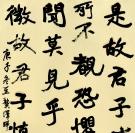 是故君子
所不覩恐懼
聞莫見乎
微故君子慎
庚子冬